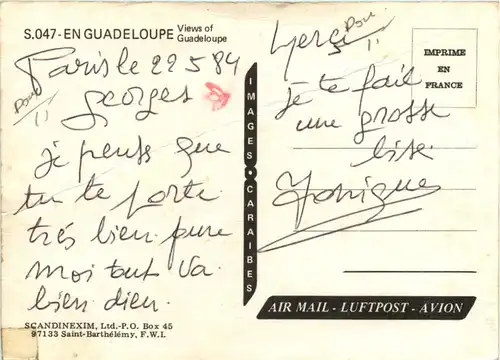 S.047-EN GUADELOUPE Views of Guadeloupe
Paris le 22 5 84
georges
je pense que
tu te porte
très bien. pure
moi tout va.
bien dieu.
SCANDINEXIM, Ltd.-P.O. Box 45
97133 Saint-Barthélémy, F.W.I.
IMAGES CARAIBES
Merci
je te fait
une grosse
bise.
IMPRIME
EN
FRANCE
AIR MAIL - LUFTPOST - AVION